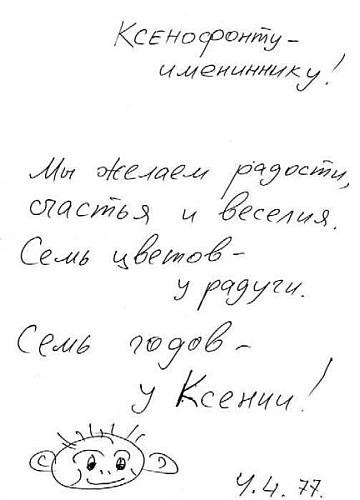 Ксенофонту-
имениннику!
Мы желаем радости,
счастья и веселия.
Семь цветов-
у радуги.
Семь годов-
у Ксении!
4.4.77.